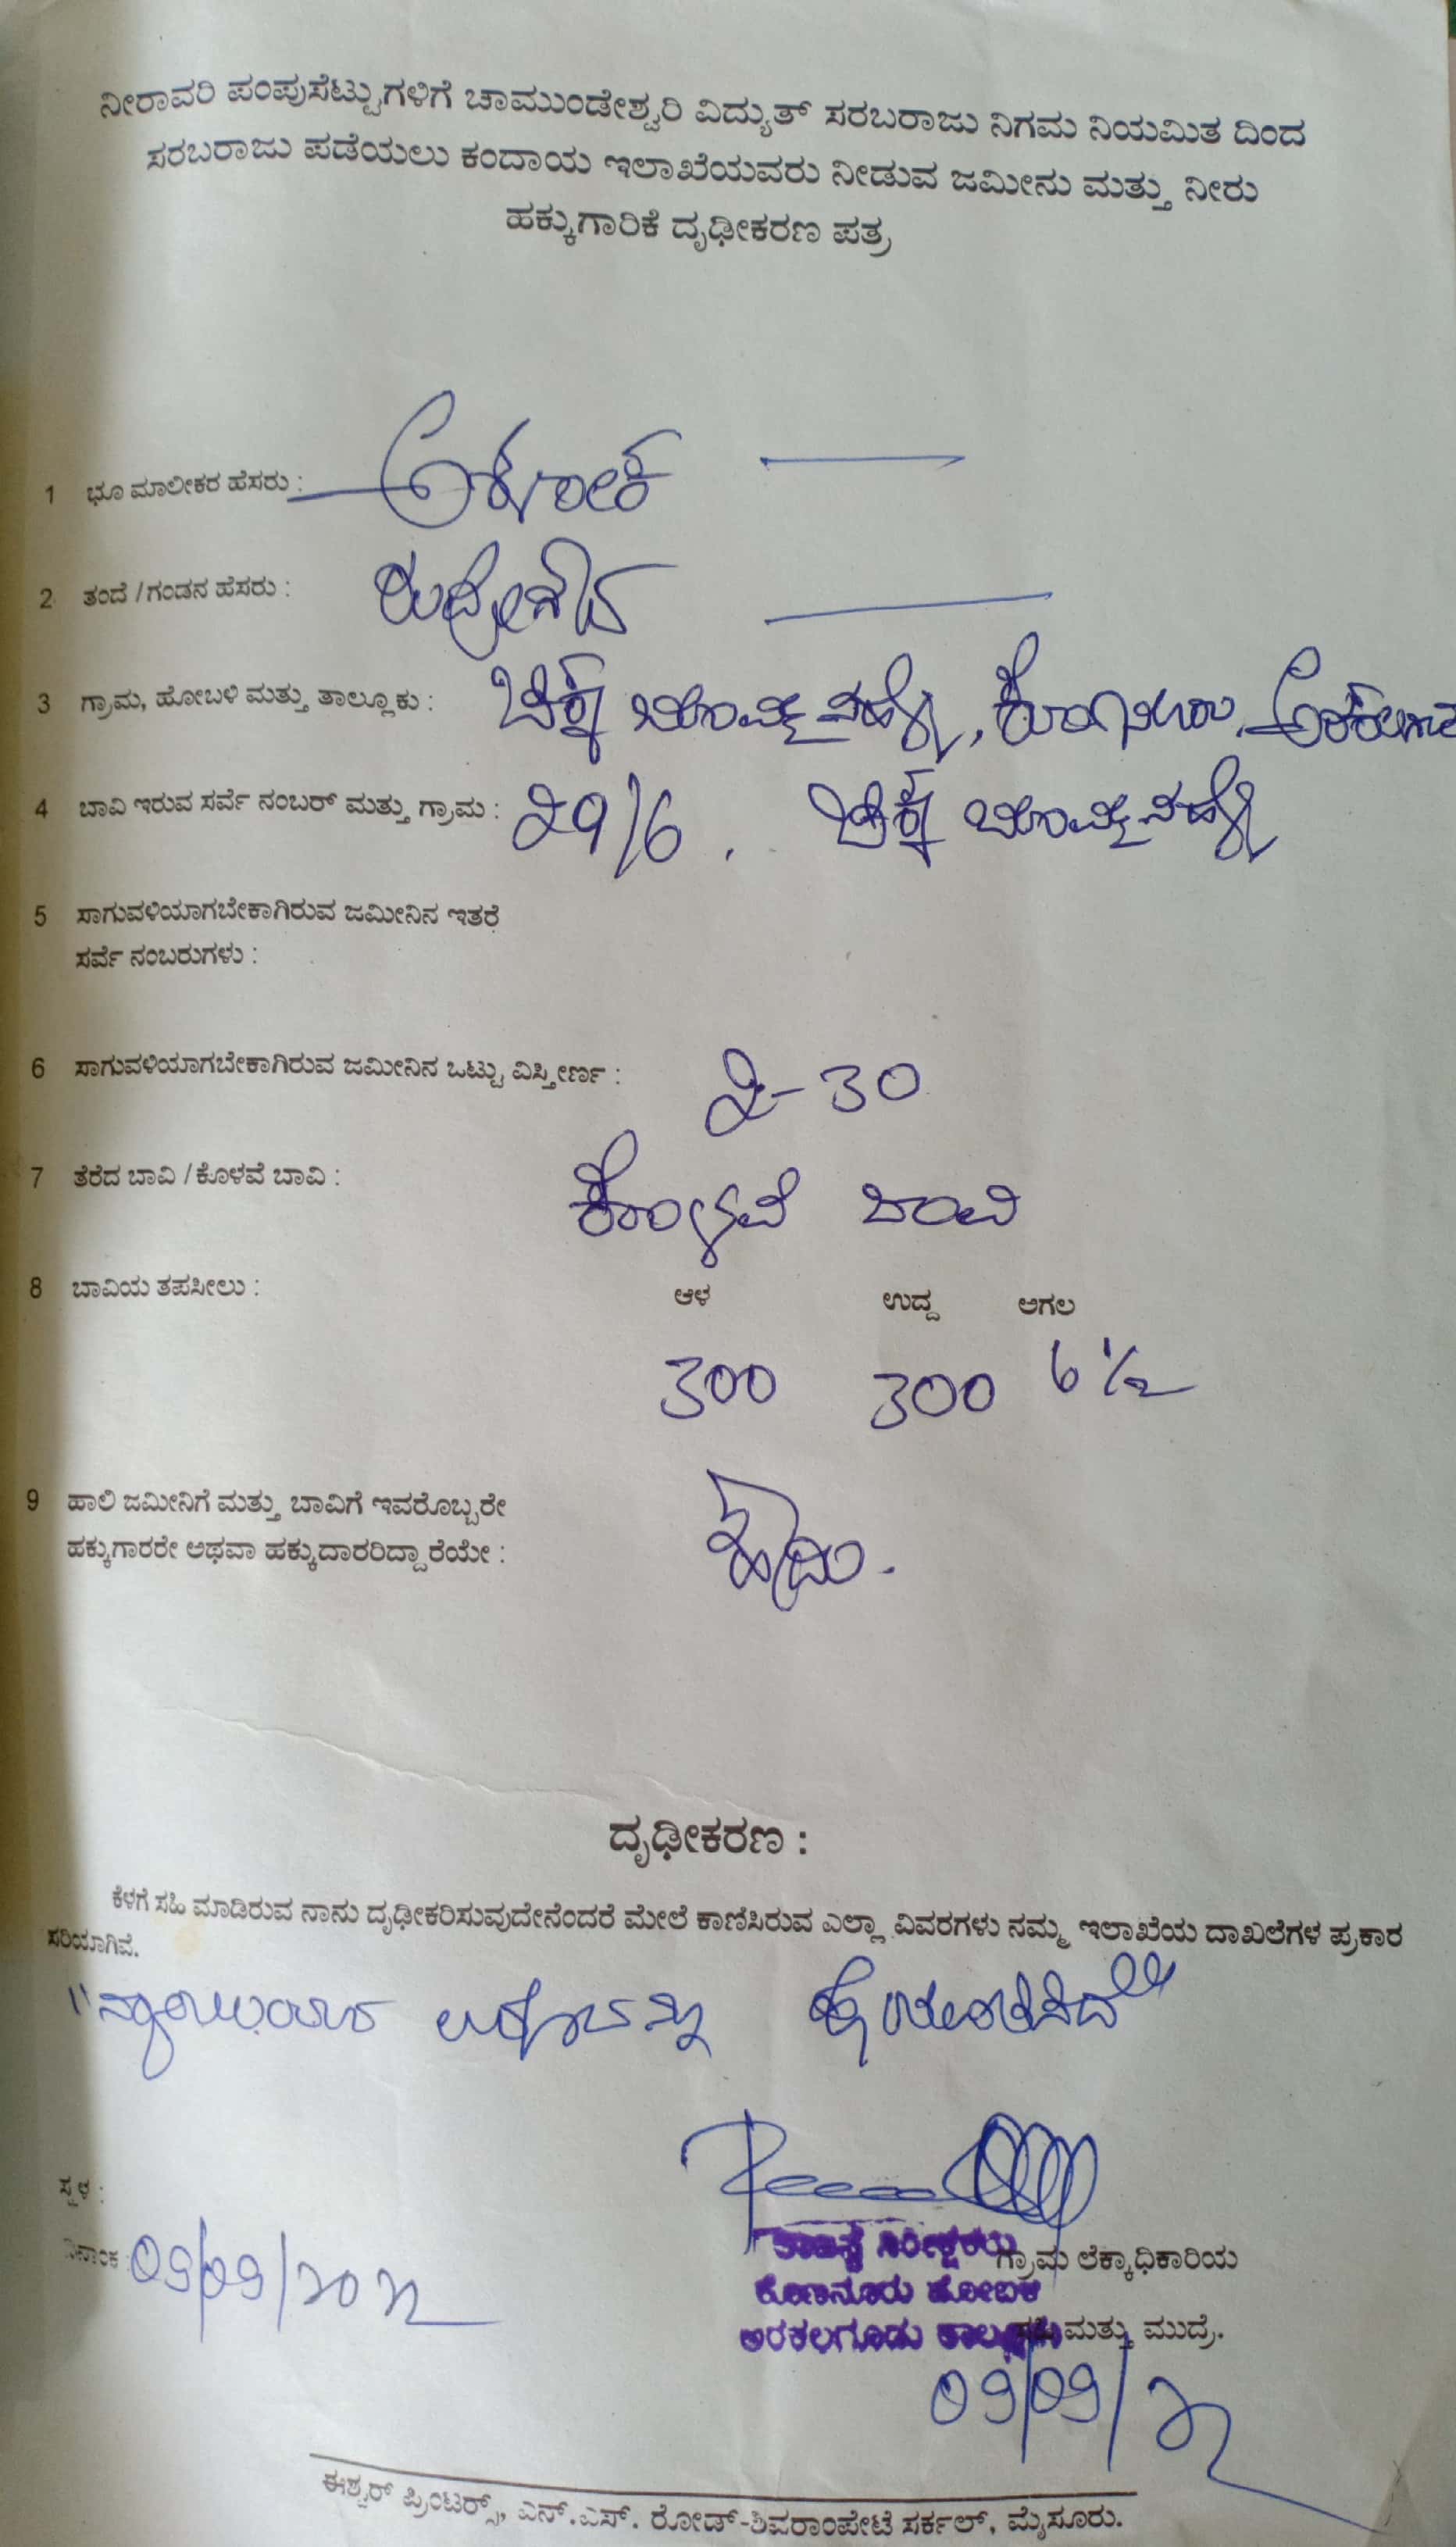 ನೀರಾವರಿ ಪಂಪುಸೆಟ್ಟುಗಳಿಗೆ ಚಾಮುಂಡೇಶ್ವರಿ ವಿದ್ಯುತ್ ಸರಬರಾಜು ನಿಗಮ ನಿಯಮಿತ ದಿಂದ
ಸರಬರಾಜು ಪಡೆಯಲು ಕಂದಾಯ ಇಲಾಖೆಯವರು ನೀಡುವ ಜಮೀನು ಮತ್ತು ನೀರು
ಹಕ್ಕುಗಾರಿಕೆ ದೃಢೀಕರಣ ಪತ್ರ
1 ಭೂ ಮಾಲೀಕರ ಹೆಸರು : ಅಶೋಕ
2 ತಂದೆ /ಗಂಡನ ಹೆಸರು : ರುದ್ರೇಗೌಡ
3 ಗ್ರಾಮ, ಹೋಬಳಿ ಮತ್ತು ತಾಲ್ಲೂಕು : ಚಿಕ್ಕ ಬೊಮ್ಮನಹಳ್ಳಿ, ಕೊಣನೂರು, ಅರಕಲಗೂಡು
4 ಬಾವಿ ಇರುವ ಸರ್ವೆ ನಂಬರ್ ಮತ್ತು ಗ್ರಾಮ : 29/6, ಚಿಕ್ಕ ಬೊಮ್ಮನಹಳ್ಳಿ
5 ಸಾಗುವಳಿಯಾಗಬೇಕಾಗಿರುವ ಜಮೀನಿನ ಇತರೆ
ಸರ್ವೆ ನಂಬರುಗಳು :
6 ಸಾಗುವಳಿಯಾಗಬೇಕಾಗಿರುವ ಜಮೀನಿನ ಒಟ್ಟು ವಿಸ್ತೀರ್ಣ : 2-30
7 ತೆರೆದ ಬಾವಿ /ಕೊಳವೆ ಬಾವಿ : ಕೊಳವೆ ಬಾವಿ
8 ಬಾವಿಯ ತಪಸೀಲು : ಆಳ ಉದ್ದ ಅಗಲ
300 300 6 ½
9 ಹಾಲಿ ಜಮೀನಿಗೆ ಮತ್ತು ಬಾವಿಗೆ ಇವರೊಬ್ಬರೇ
ಹಕ್ಕುಗಾರರೇ ಅಥವಾ ಹಕ್ಕುದಾರರಿದ್ದಾರೆಯೇ : ಹೌದು.
ದೃಢೀಕರಣ :
ಕೆಳಗೆ ಸಹಿ ಮಾಡಿರುವ ನಾನು ದೃಢೀಕರಿಸುವುದೇನೆಂದರೆ ಮೇಲೆ ಕಾಣಿಸಿರುವ ಎಲ್ಲಾ ವಿವರಗಳು ನಮ್ಮ ಇಲಾಖೆಯ ದಾಖಲೆಗಳ ಪ್ರಕಾರ
ಸರಿಯಾಗಿವೆ.
ಸ್ಥಳ :
ದಿನಾಂಕ : 09/09/2022
ಗ್ರಾಮ ಲೆಕ್ಕಾಧಿಕಾರಿಯ
ಕೊಣನೂರು ಹೋಬಳಿ
ಅರಕಲಗೂಡು ತಾಲ್ಲೂಕು
ಸಹಿ ಮತ್ತು ಮುದ್ರೆ.
09/09/22
ಈಶ್ವರ್ ಪ್ರಿಂಟರ್ಸ್, ಎನ್.ಎಸ್. ರೋಡ್-ಶಿವರಾಂಪೇಟೆ ಸರ್ಕಲ್, ಮೈಸೂರು.